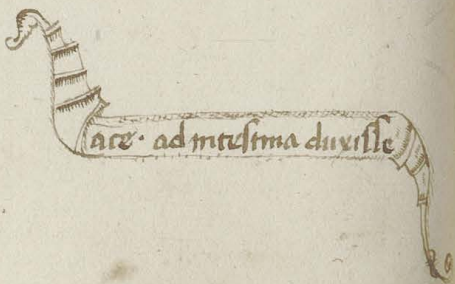 ace · ad intestina duxisse